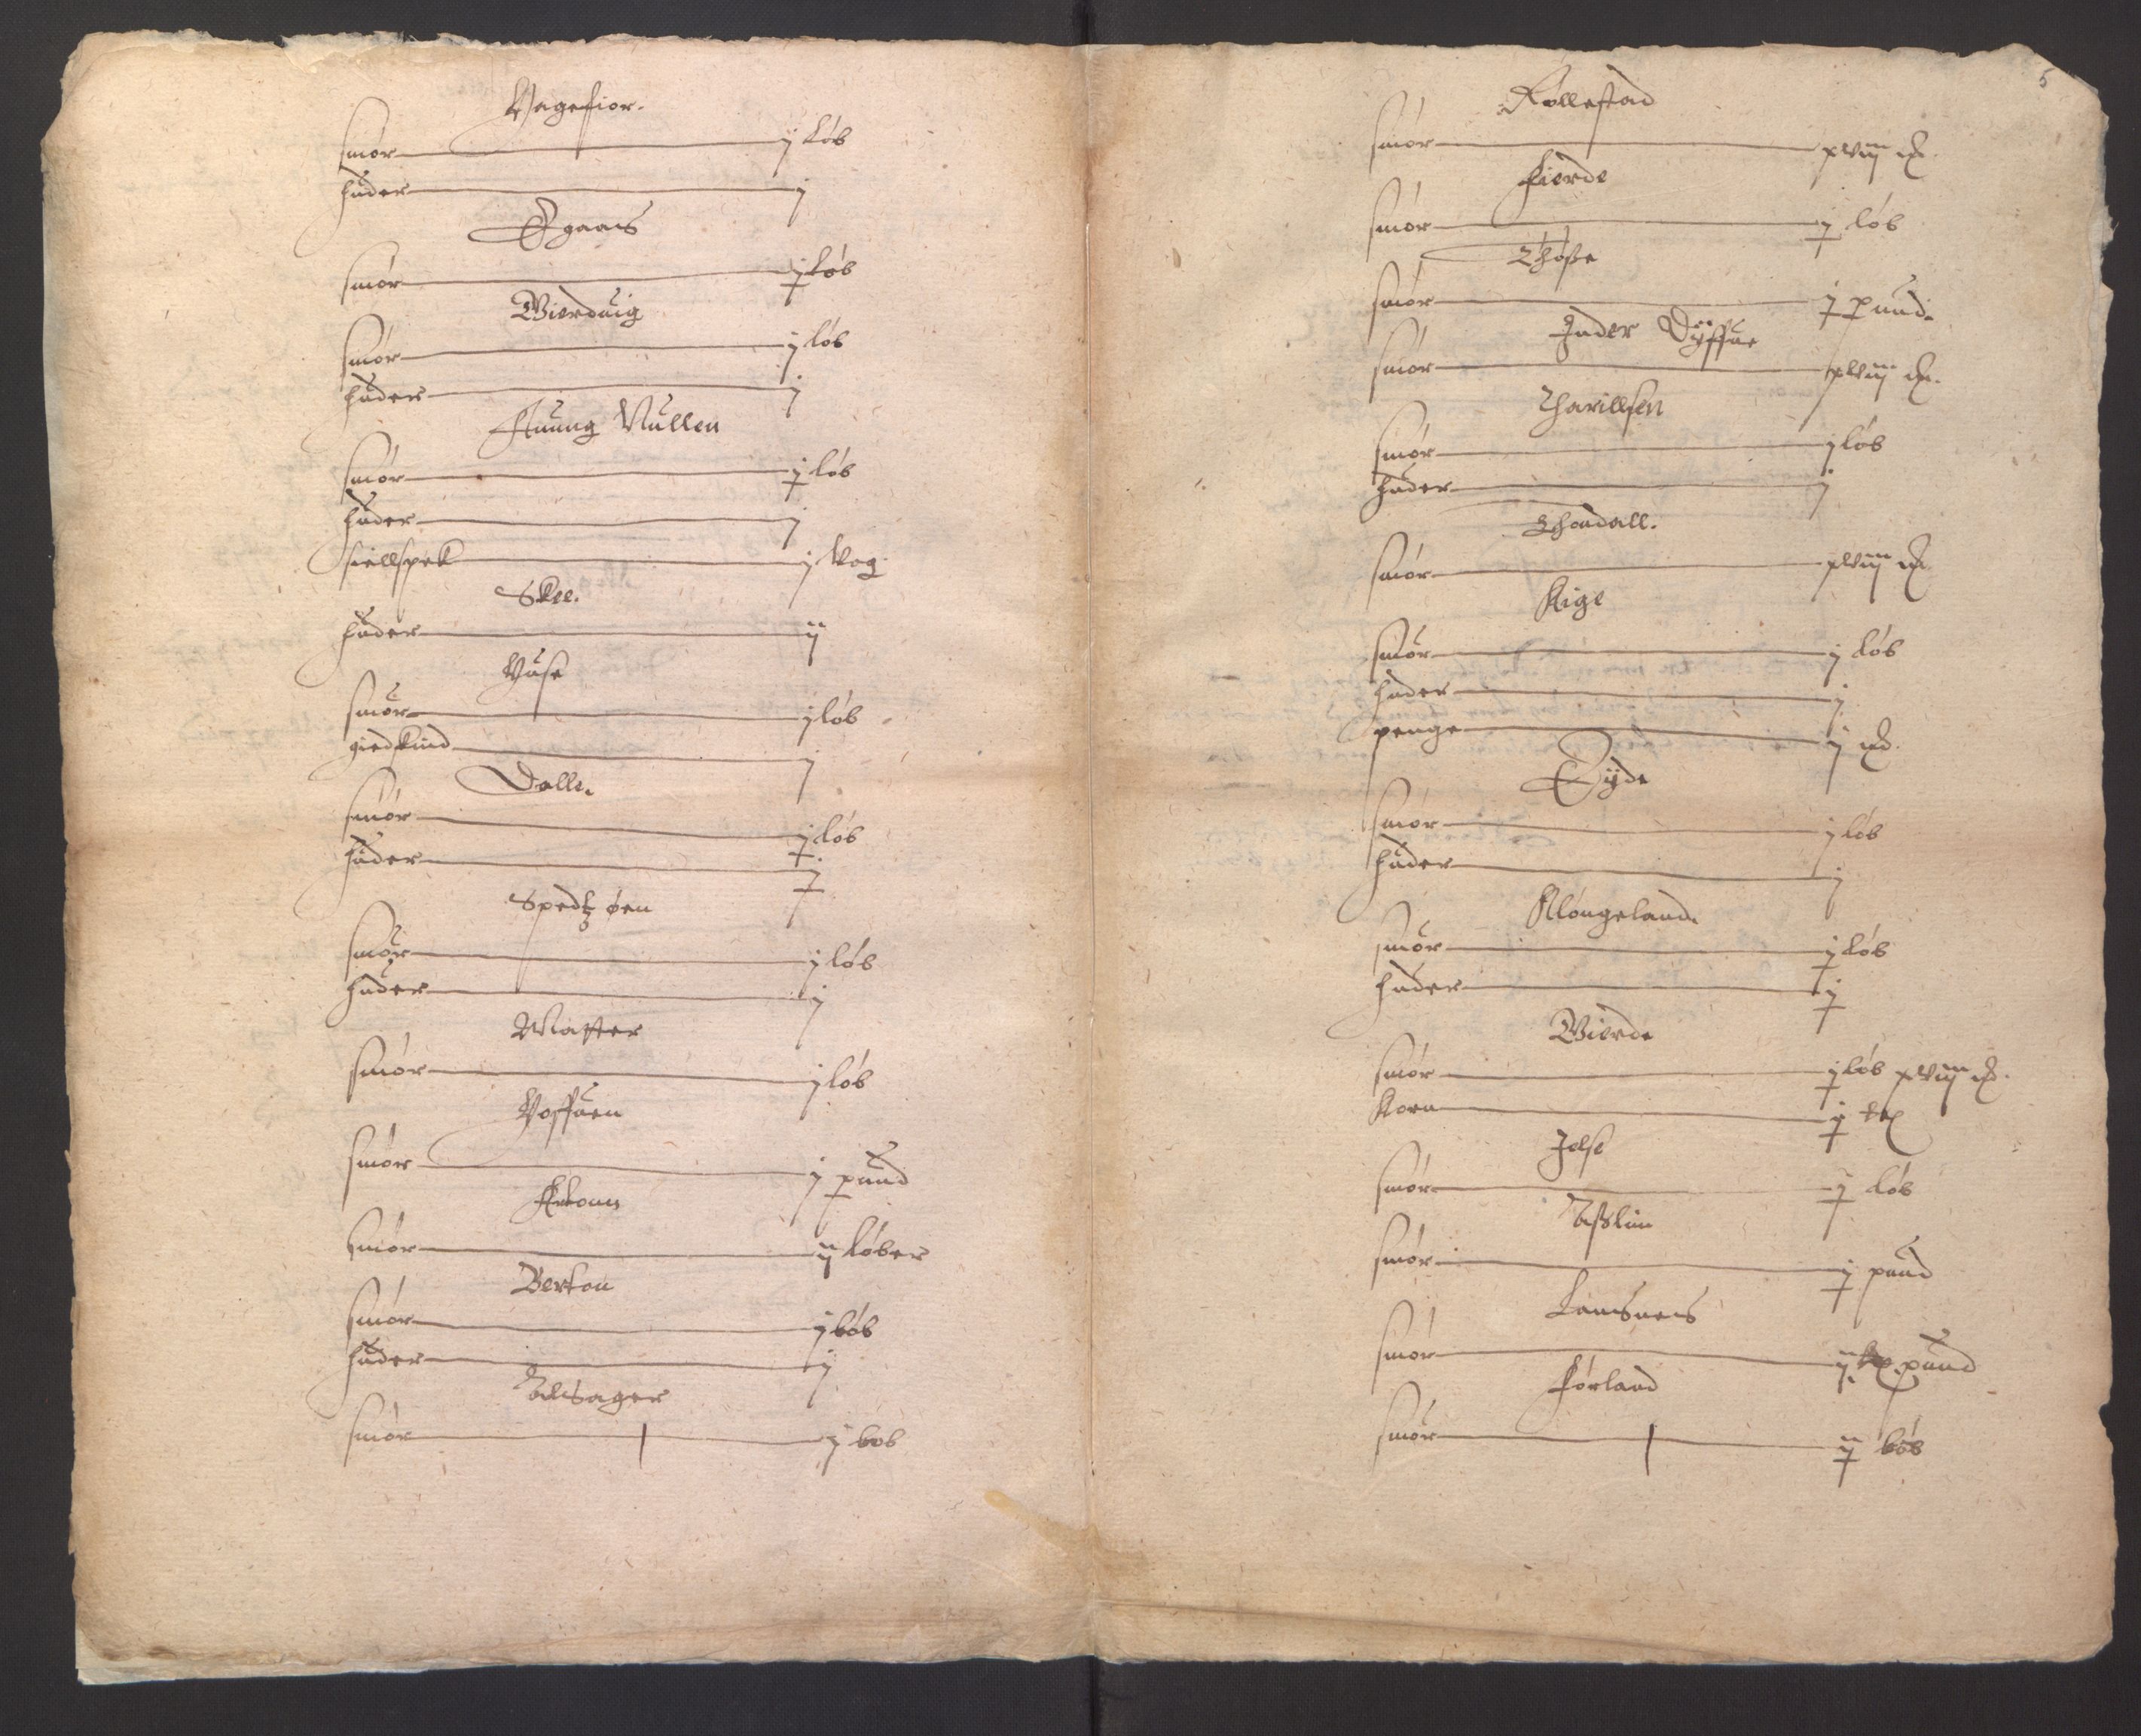 Vagefior.
smør j løb
huder j
Egaas
smør j løb
Wierduig
smør j løb
huder j
Stuung Mullen
smør j løb
huder j
fiellspek j vog
Skee.
huder ij
Vuse
smør j løb
giedskind j
Dalle.
smør j løb
huder j
Spedtz øen
smør j løb
huder j
Matter
smør j løb
Voffuen
smør j pund
smør ij løber
Berkou
smør j løb
huder j
smør j løb
5
Røllestad
smør xviij
Fierde
smør j løb
Thøsse
smør j pund.
Inder Dyffue
smør xviij
Tharillsen
smør j løb
huder j
Thoudall.
smør xviij
Kige
smør j løb
huder j
penge j
Eyde
smør j løb
huder j
Klongeland.
smør j løb
huder j
Wierde
smør j løb xviij
Korn j
Jelse
smør j løb
smør j pund
smør ij pund
Førland
smør ij løb